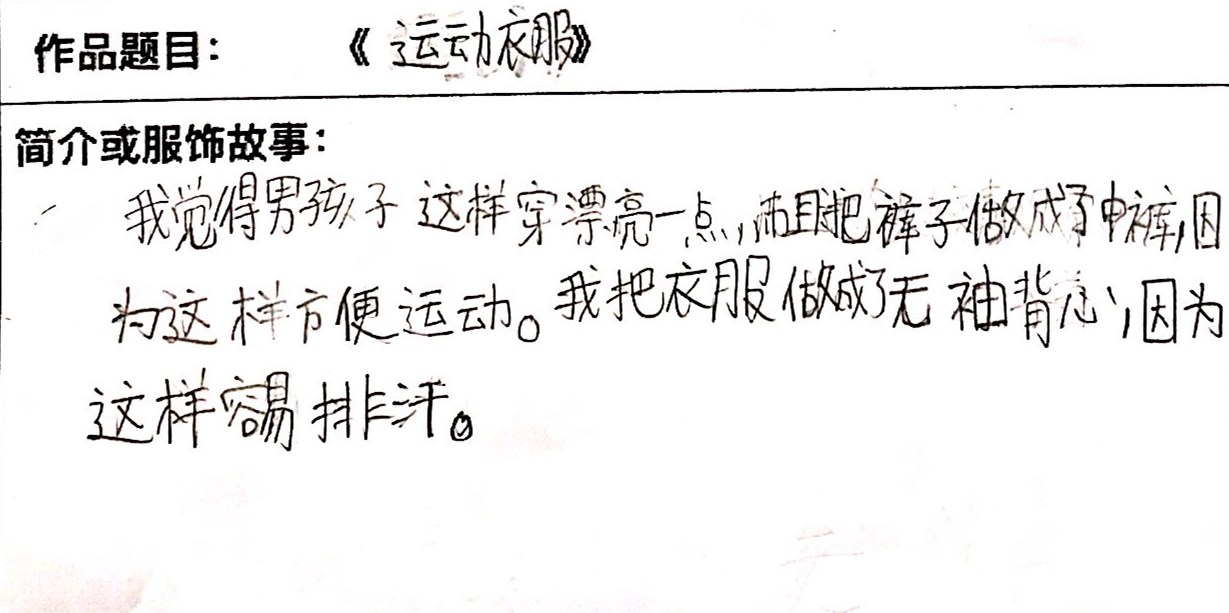 作品题目：《运动衣服》
简介或服饰故事：
我觉得男孩子这样穿漂亮一点，而且把裤子做成了中裤，因
为这样方便运动。我把衣服做成了无袖背心，因为
这样容易排汗。